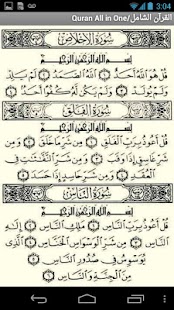 3:04
Quran All in One/القرآن الشامل
سُورَةُ الإِخْلَاصِ
بِسْمِ اللَّهِ الرَّحْمَٰنِ الرَّحِيمِ
قُلْ هُوَ اللَّهُ أَحَدٌ ۝١ اللَّهُ الصَّمَدُ ۝٢
لَمْ يَلِدْ وَلَمْ يُولَدْ ۝٣ وَلَمْ يَكُن لَّهُ كُفُوًا أَحَدٌ ۝٤
سُورَةُ الْفَلَقِ
بِسْمِ اللَّهِ الرَّحْمَٰنِ الرَّحِيمِ
قُلْ أَعُوذُ بِرَبِّ الْفَلَقِ ۝١ مِن شَرِّ مَا خَلَقَ ۝٢ وَمِن
شَرِّ غَاسِقٍ إِذَا وَقَبَ ۝٣ وَمِن شَرِّ النَّفَّاثَاتِ فِي
الْعُقَدِ ۝٤ وَمِن شَرِّ حَاسِدٍ إِذَا حَسَدَ ۝٥
سُورَةُ النَّاسِ
بِسْمِ اللَّهِ الرَّحْمَٰنِ الرَّحِيمِ
قُلْ أَعُوذُ بِرَبِّ النَّاسِ ۝١ مَلِكِ النَّاسِ ۝٢
إِلَٰهِ النَّاسِ ۝٣ مِن شَرِّ الْوَسْوَاسِ الْخَنَّاسِ ۝٤ الَّذِي
يُوَسْوِسُ فِي صُدُورِ النَّاسِ ۝٥
مِنَ الْجِنَّةِ وَالنَّاسِ ۝٦